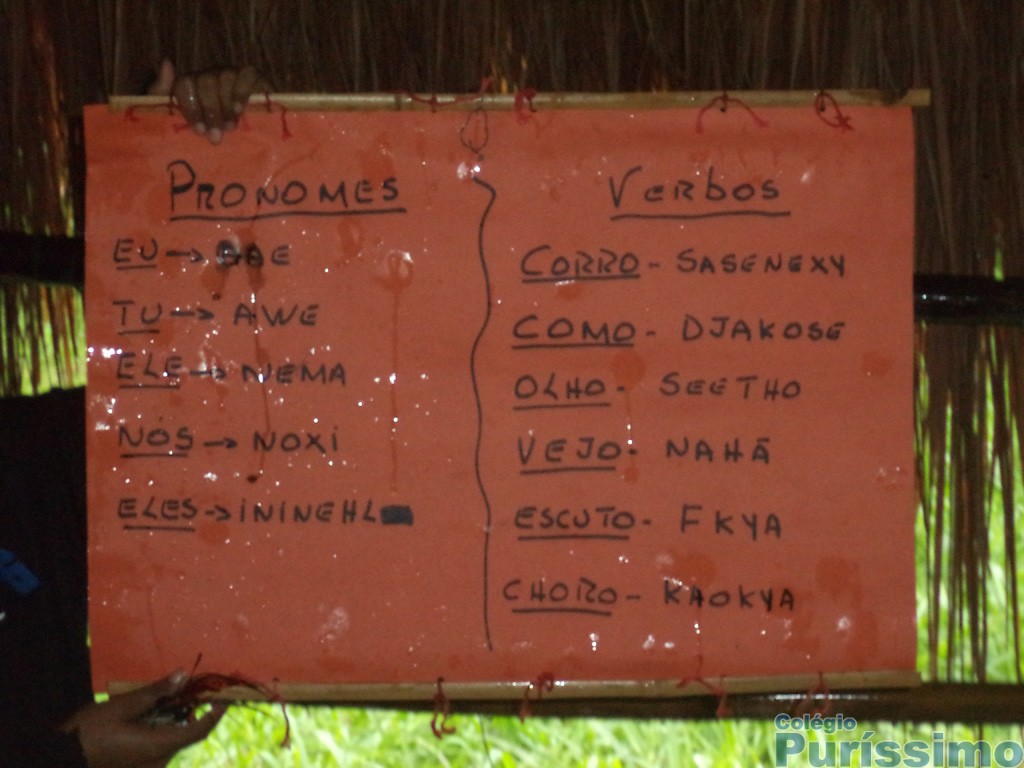 PRONOMES
EU →
TU → AWE
ELE → NEMA
NÓS → NOXI
ELES → ININEHL
Verbos
CORRO - SASENEXY
COMO - DJAKOSE
OLHO - SEETHO
VEJO - NAHÃ
ESCUTO - FKYA
CHORO - KAOKYA
Colégio
Puríssimo